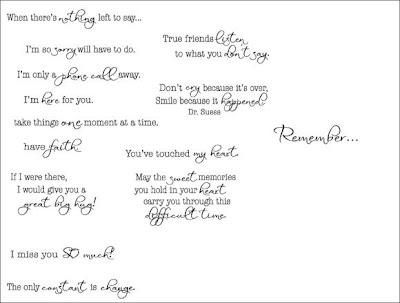 When there's nothing left to say...
I'm so sorry will have to do.
I'm only a phone call away.
I'm here for you.
take things one moment at a time.
have faith.
If I were there,
I would give you a
great big hug!
I miss you SO much!
The only constant is change.
True friends listen
to what you don't say.
Don't cry because it's over,
Smile because it happened.
Dr. Suess
You've touched my heart.
May the sweet memories
you hold in your heart
carry you through this
difficult time.
Remember...